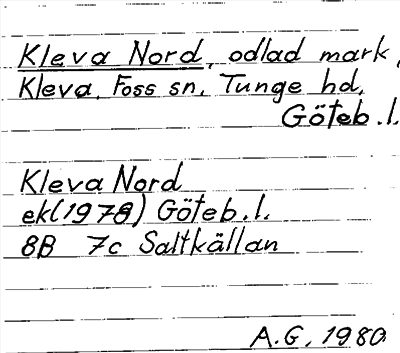 Kleva Nord, odlad mark,
Kleva, Foss sn, Tunge hd,
Göteb. l.
Kleva Nord
ek(1978) Göteb. l.
8B 7c Saltkällan
A.G. 1980